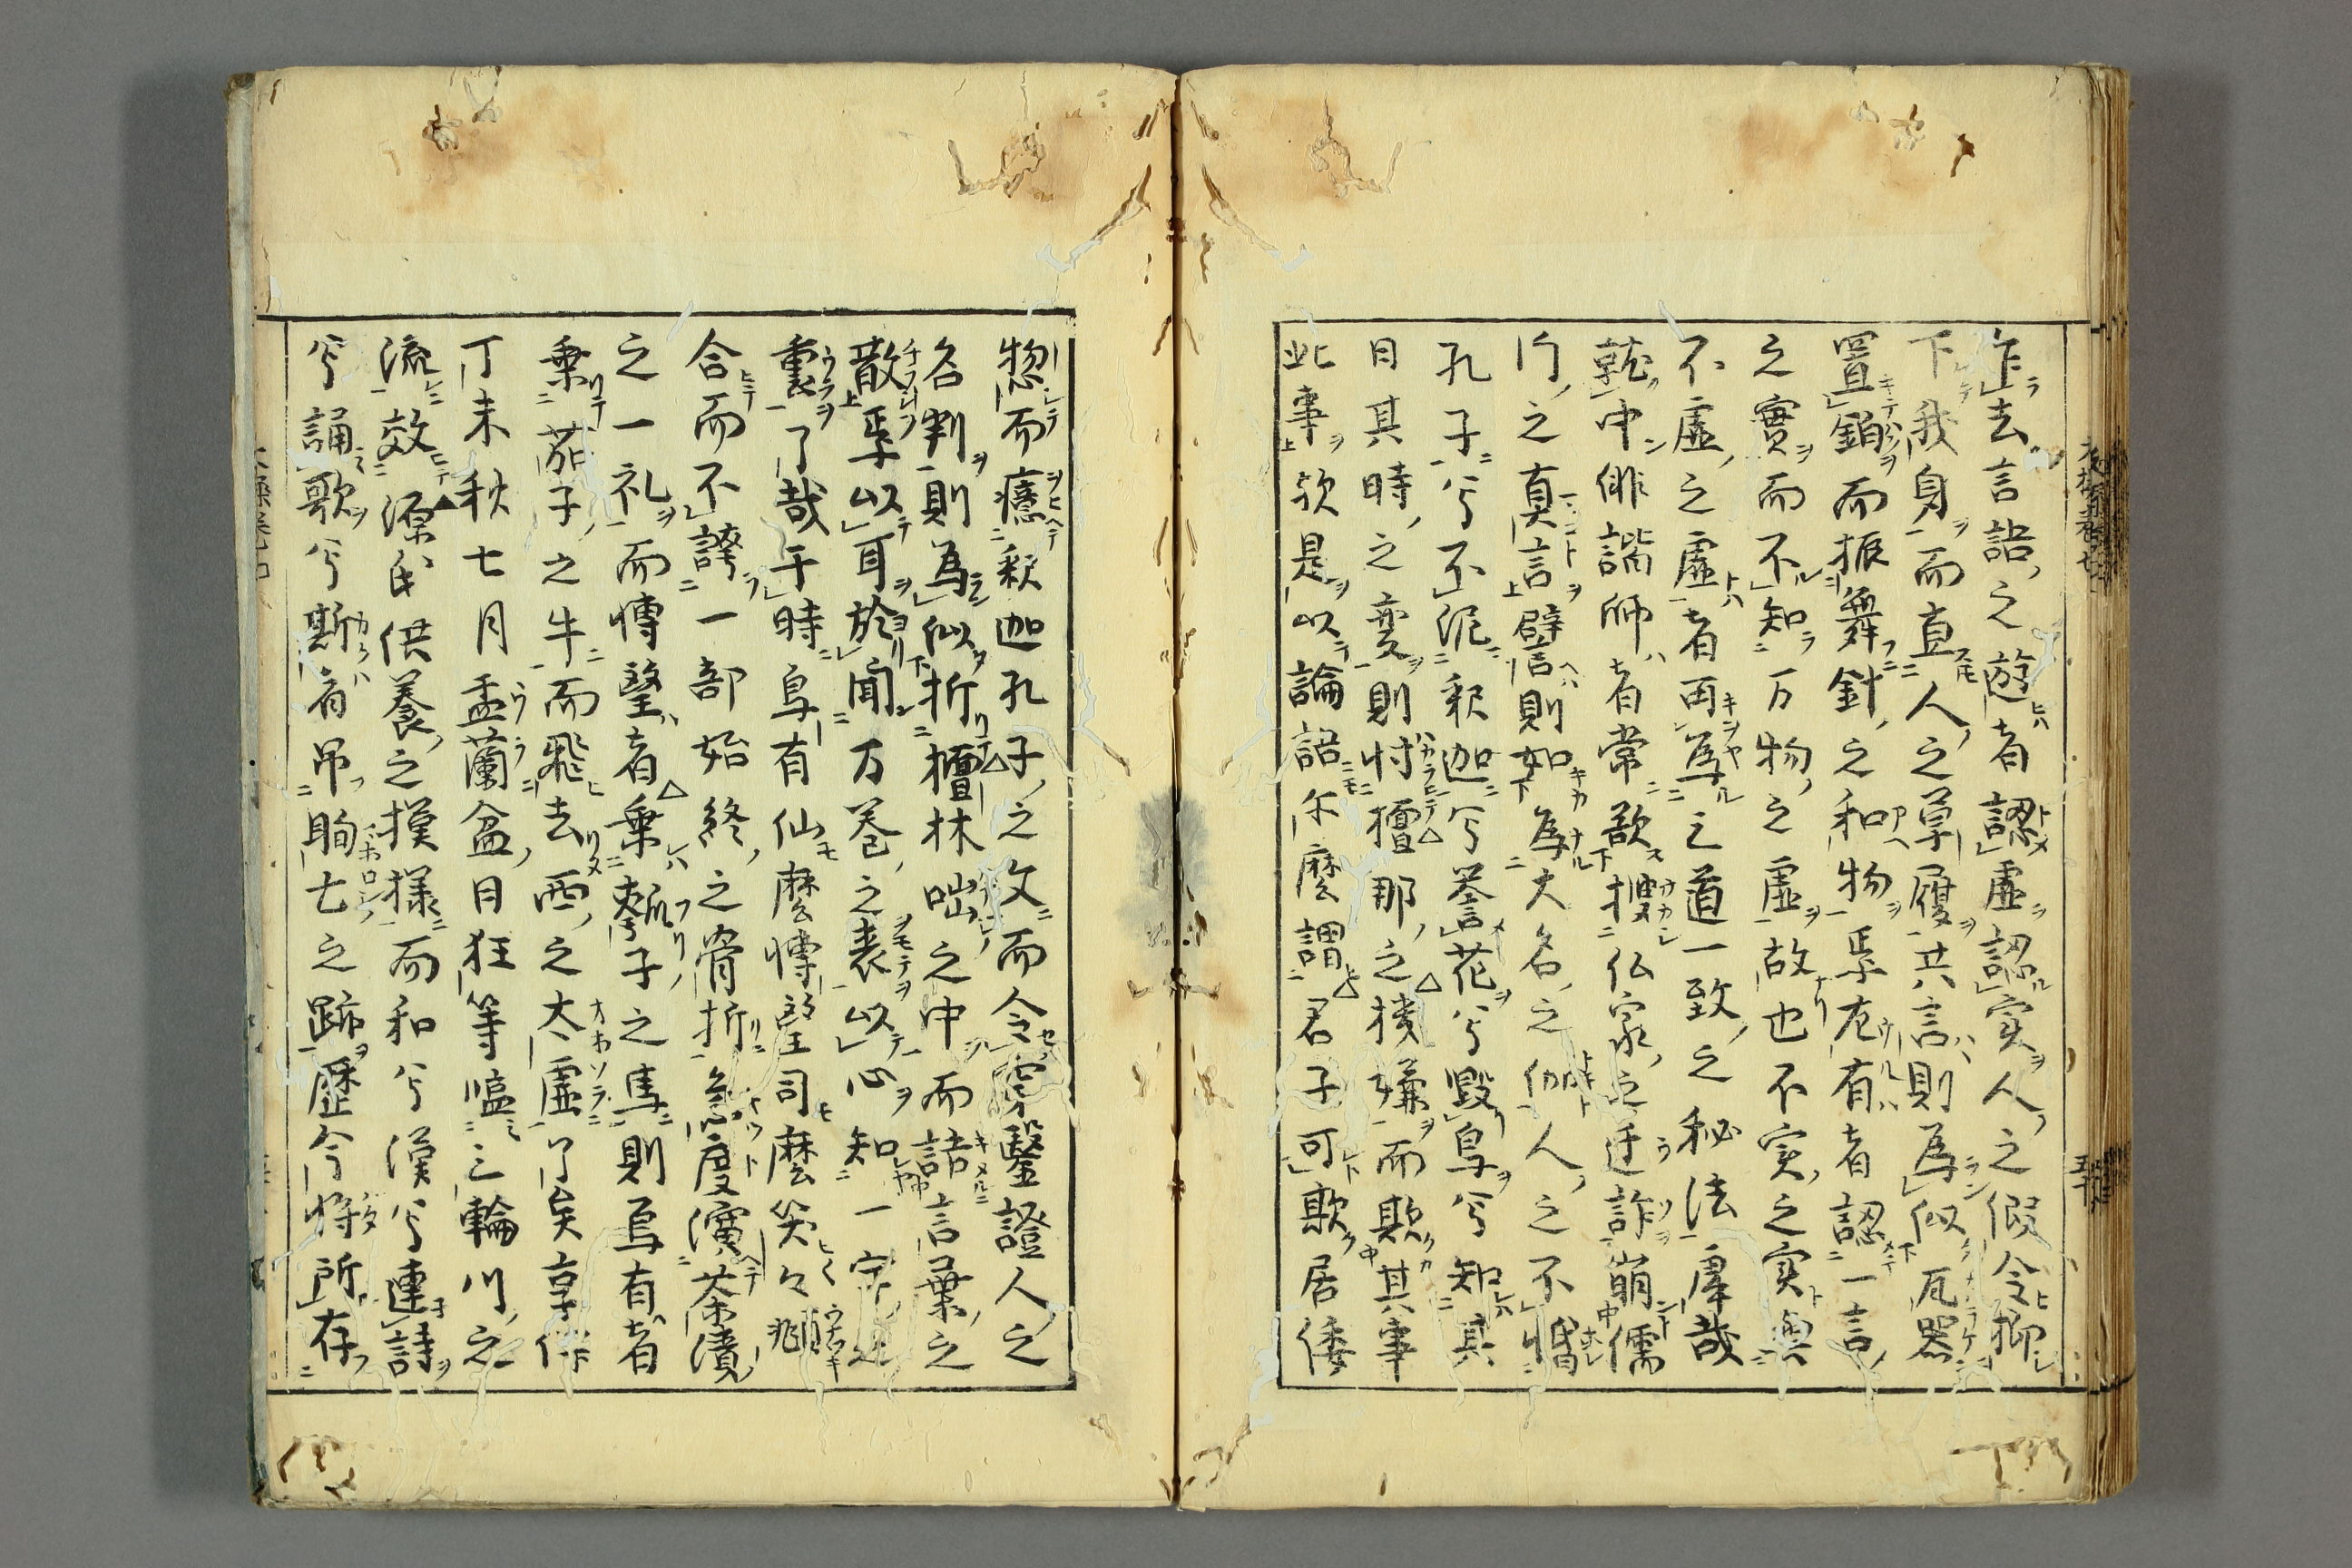 乍去言語之遊者認虚認実人之假令抑
下我身而直人之草履共言則為似瓦器
置銷而振舞針之和物焉左有者認一言
之實而不知万物之虚故也不实之实與
不虚之虚者両為之道一致之秘法虖哉
就中俳諧師者常欲捜仏家之迂詐崩儒
行之真言譬則如為大名之伽人之不惜
孔子兮不泥釈迦兮誉花兮毀鳥兮知其
日其時之変則忖檀那之機嫌而欺其事
此事欤是以論語尓麼謂君子可欺居倭
惣而癔釈迦孔子之文而令穿鑿證人之
名判則為似折檀林咄之中而詰言葉之
散焉以耳於聞万巻之表以心知一字之
裏了哉于時烏有仙麼愽望司麼笑々
合而不謗一部始終之骨折急度濱茶漬
之一礼而愽望者乗瓠子之馬則烏有者
乗茄子之牛而飛去西之太虚了矣享保
丁未秋七月盂蘭盆日狂等嗑三輪川之
流效源氏供養之摸様而和兮漢兮連詩
兮誦歌兮斯者吊朐亡之跡歴今将所存